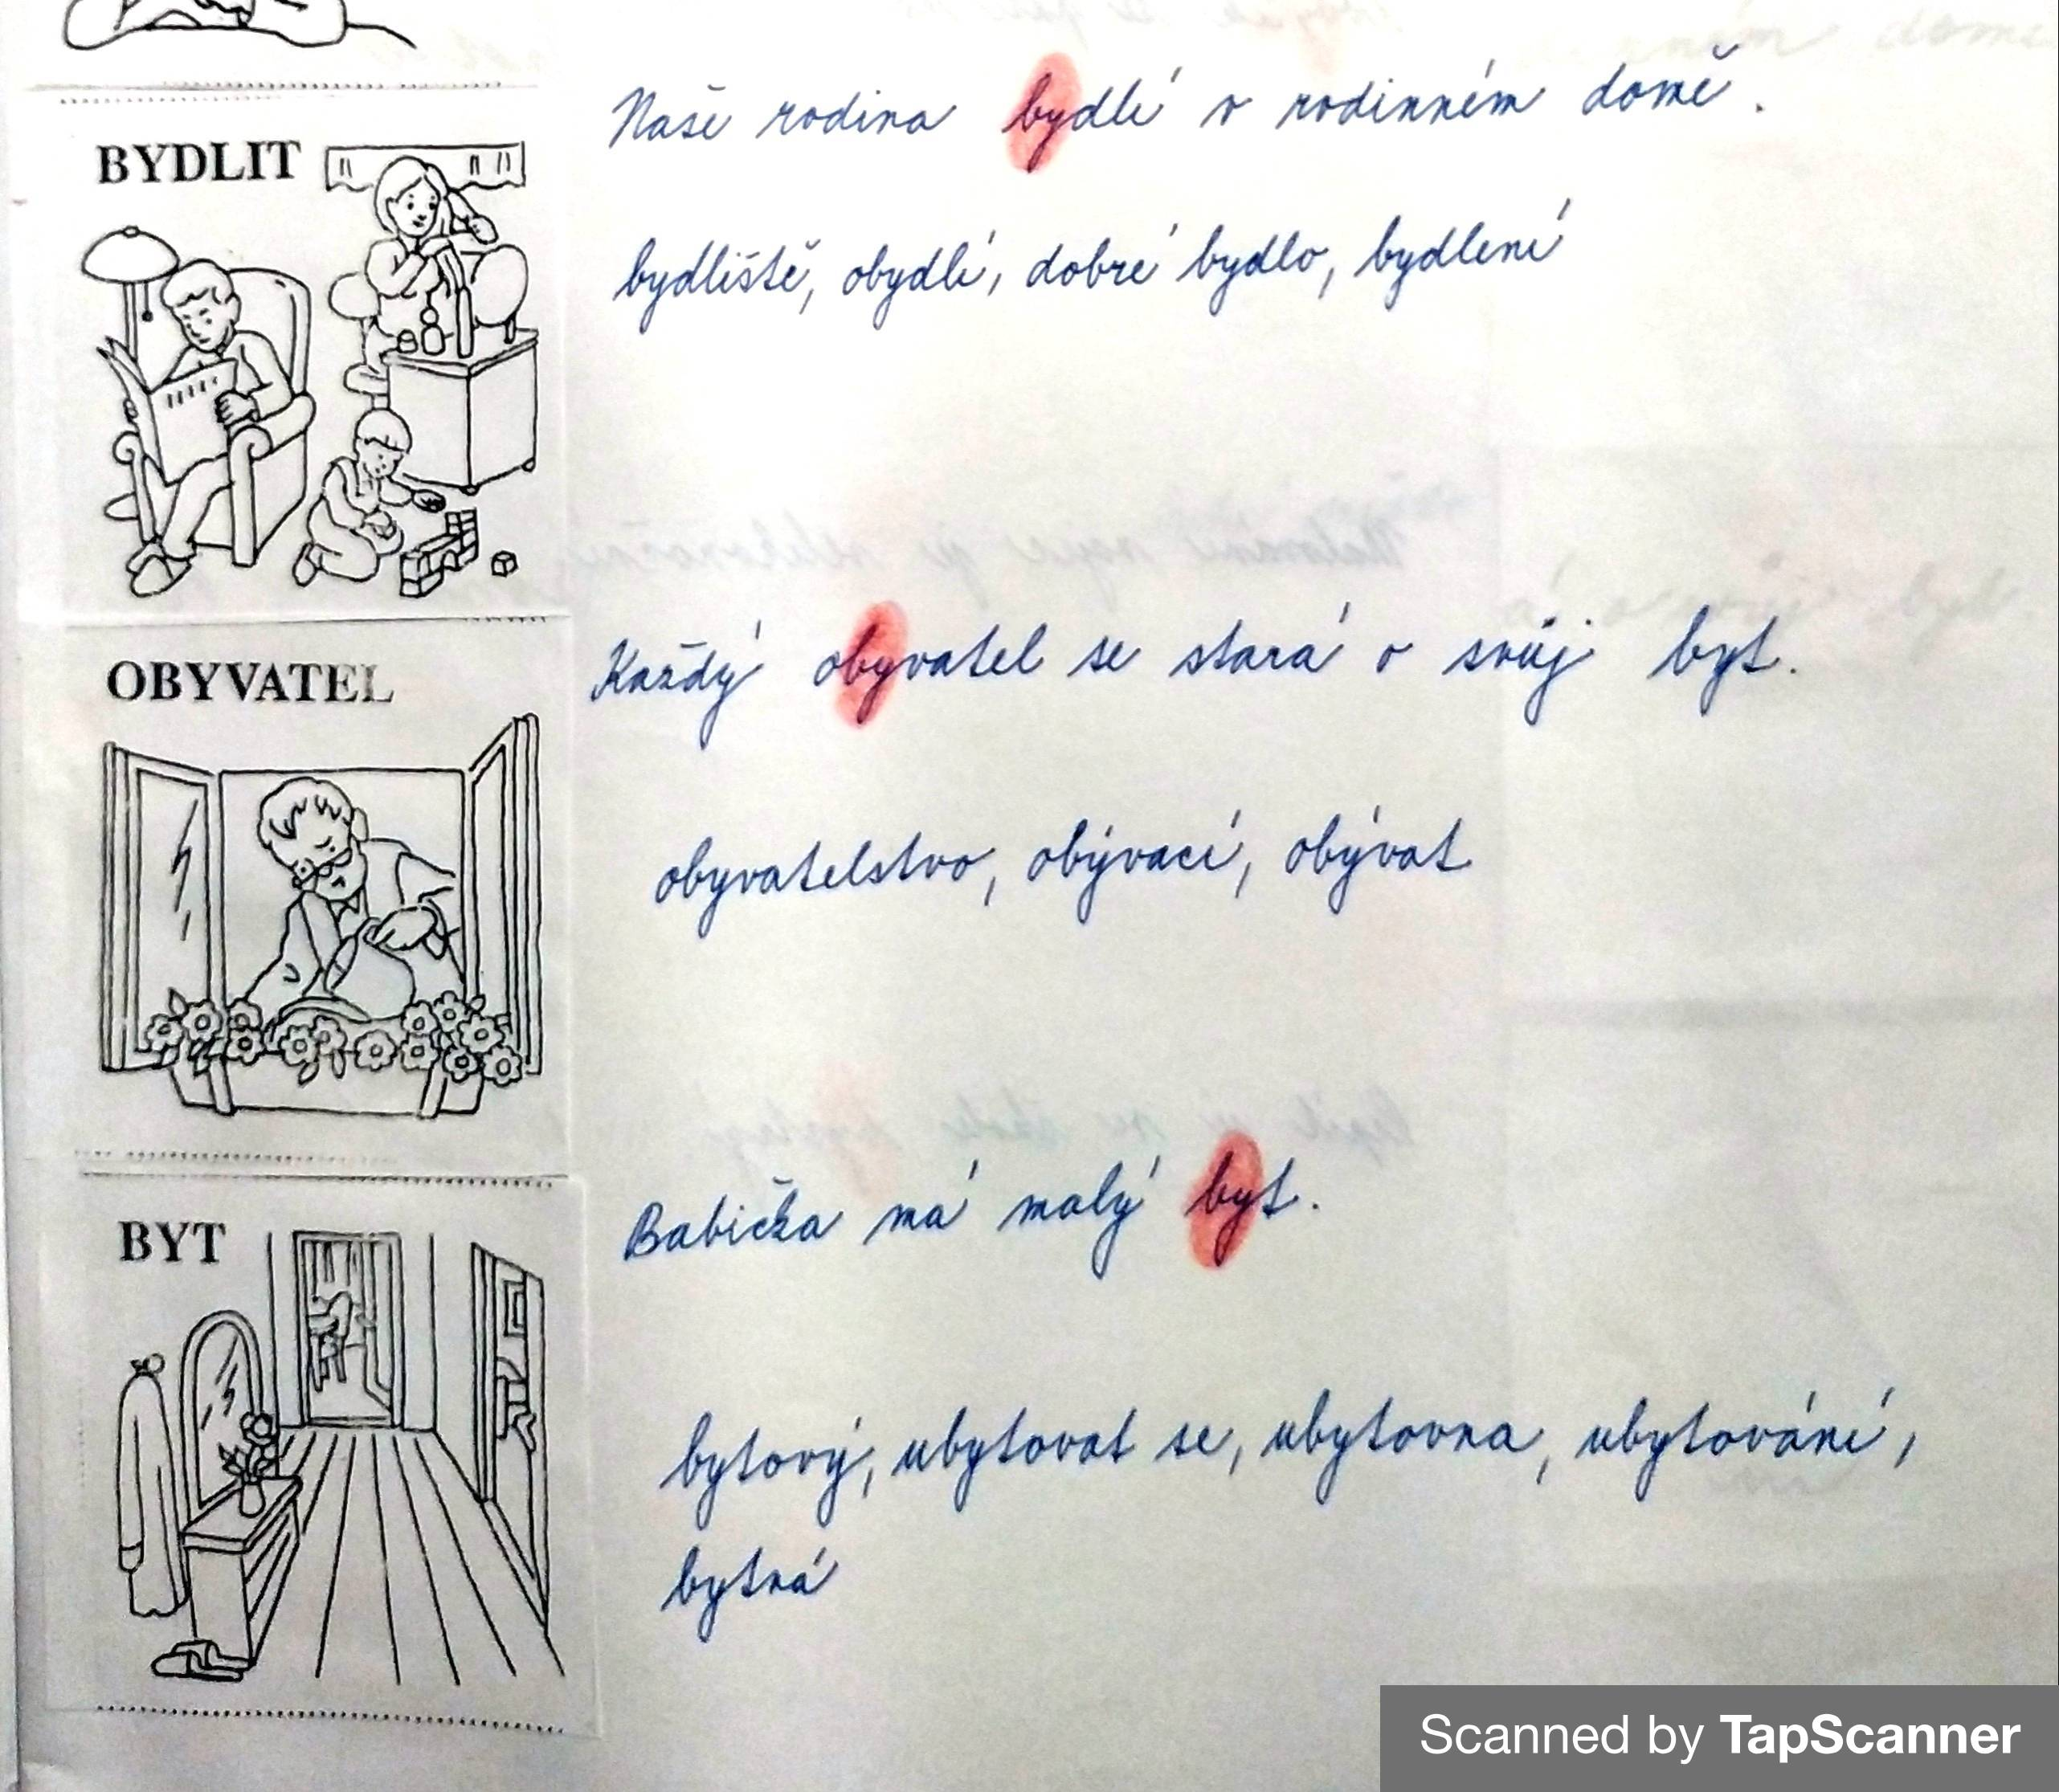 BYDLIT
Naše rodina bydlí v rodinném domě.
bydliště, obydlí, dobré bydlo, bydlení
OBYVATEL
Každý obyvatel se stará o svůj byt.
obyvatelstvo, obývací, obývat
BYT
Babička má malý byt.
bytový, ubytovat se, ubytovna, ubytování,
bytná
Scanned by TapScanner